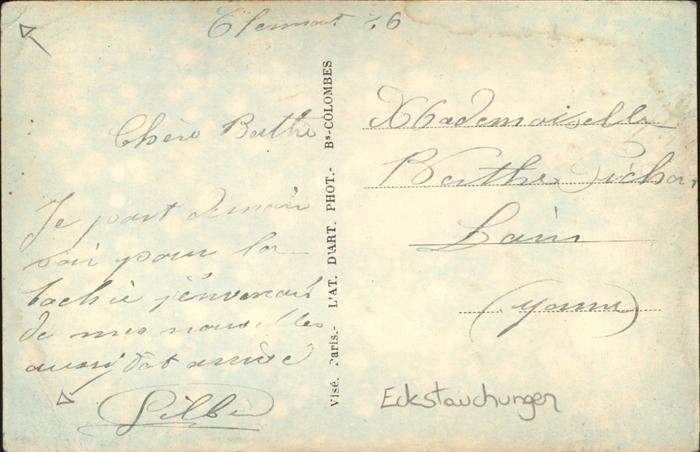 Clermont 26
Chère Berthe
Je part demain
soir pour la
j'enverrais
de mes nouvelles
aussitot arrivé
Visé. Paris.- L'AT. D'ART. PHOT.- Bs-COLOMBES
Mademoiselle
Berthe Pichon
Lain
(Yonne)
Eckstauchungen